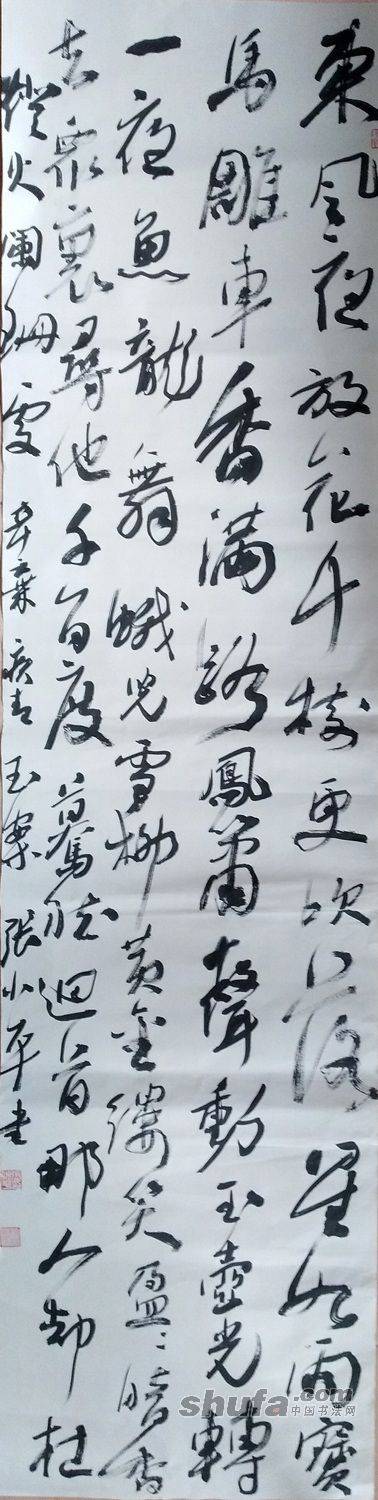 東風夜放花千樹更吹落星如雨寶
馬雕車香滿路鳳簫聲動玉壺光轉
一夜魚龍舞蛾兒雪柳黃金縷笑盈〻暗香
去眾裏尋他千百度驀然迴首那人卻在
燈火闌珊處 辛棄疾青玉案 張小平書
shufa.com
中国书法网